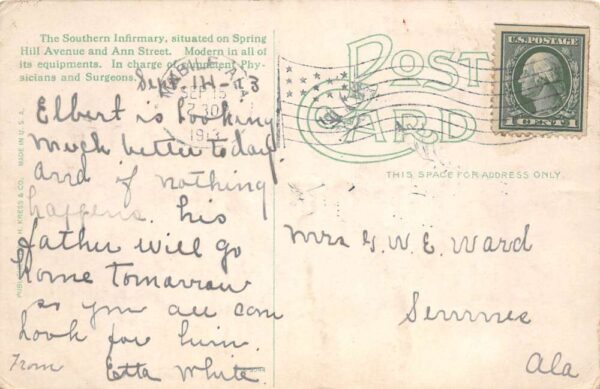 The Southern Infirmary, situated on Spring
Hill Avenue and Ann Street. Modern in all of
its equipments. In charge of Competent Phy-
sicians and Surgeons.
POST
CARD
U.S. POSTAGE
1 CENT 1
SEP 15
7 30
1913
MADE IN U. S. A.
H. KRESS & CO.
THIS SPACE FOR ADDRESS ONLY.
Sept 14-13
Elbert is looking
much better today.
And if nothing
happens. his
father will go
home tomorrow
so you all can
look for him.
From Etta White
Mrs G. W. E. Ward
Semmes
Ala